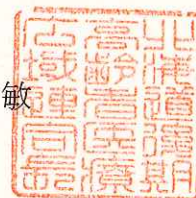 敏
北海道後期
高齢者医療
広域連合長